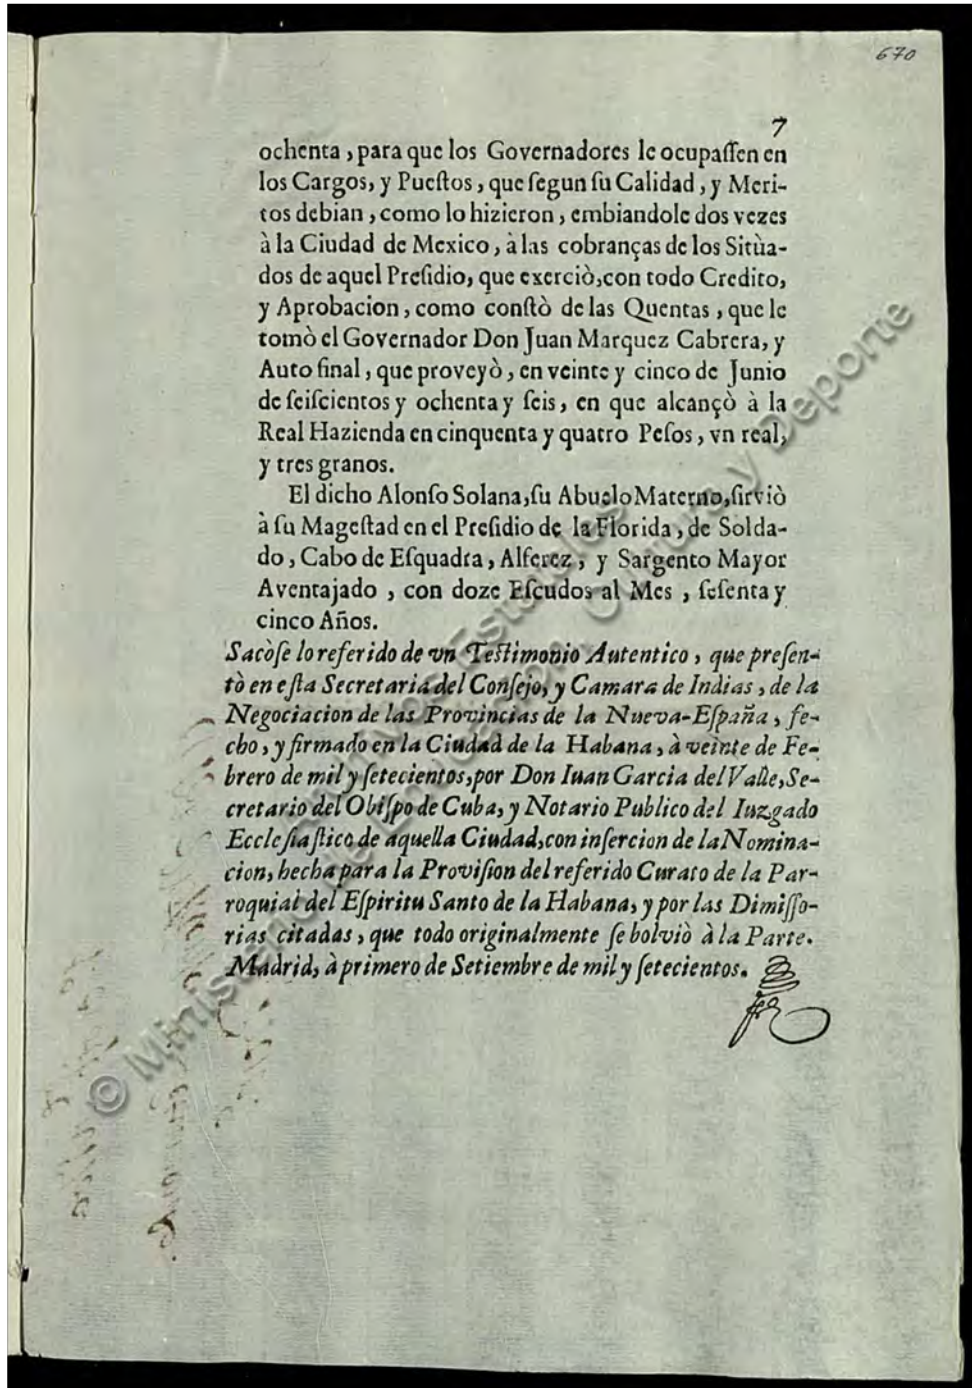 670
7
ochenta, para que los Governadores le ocupaſſen en
los Cargos, y Pueſtos, que ſegun ſu Calidad, y Meri-
tos debian, como lo hizieron, embiandole dos vezes
à la Ciudad de Mexico, à las cobranças de los Sitùa-
dos de aquel Preſidio, que exerciò, con todo Credito,
y Aprobacion, como conſtò de las Quentas, que le
tomò el Governador Don Juan Marquez Cabrera, y
Auto final, que proveyò, en veinte y cinco de Junio
de ſeiſcientos y ochenta y ſeis, en que alcançò à la
Real Hazienda en cinquenta y quatro Peſos, vn real,
y tres granos.
El dicho Alonſo Solana, ſu Abuelo Materno, ſirviò
à ſu Mageſtad en el Preſidio de la Florida, de Solda-
do, Cabo de Eſquadra, Alferez, y Sargento Mayor
Aventajado, con doze Eſcudos al Mes, ſeſenta y
cinco Años.
Sacòſe lo referido de vn Teſtimonio Autentico, que preſen-
tò en eſta Secretaria del Conſejo, y Camara de Indias, de la
Negociacion de las Provincias de la Nueva-Eſpaña, fe-
cho, y firmado en la Ciudad de la Habana, à veinte de Fe-
brero de mil y ſetecientos, por Don Iuan Garcia del Valle, Se-
cretario del Obiſpo de Cuba, y Notario Publico del Iuzgado
Eccleſiaſtico de aquella Ciudad, con inſercion de la Nomina-
cion, hecha para la Proviſion del referido Curato de la Par-
roquial del Eſpiritu Santo de la Habana, y por las Dimiſſo-
rias citadas, que todo originalmente ſe bolviò à la Parte.
Madrid, à primero de Setiembre de mil y ſetecientos.
© Ministerio de Educación, Cultura y Deporte